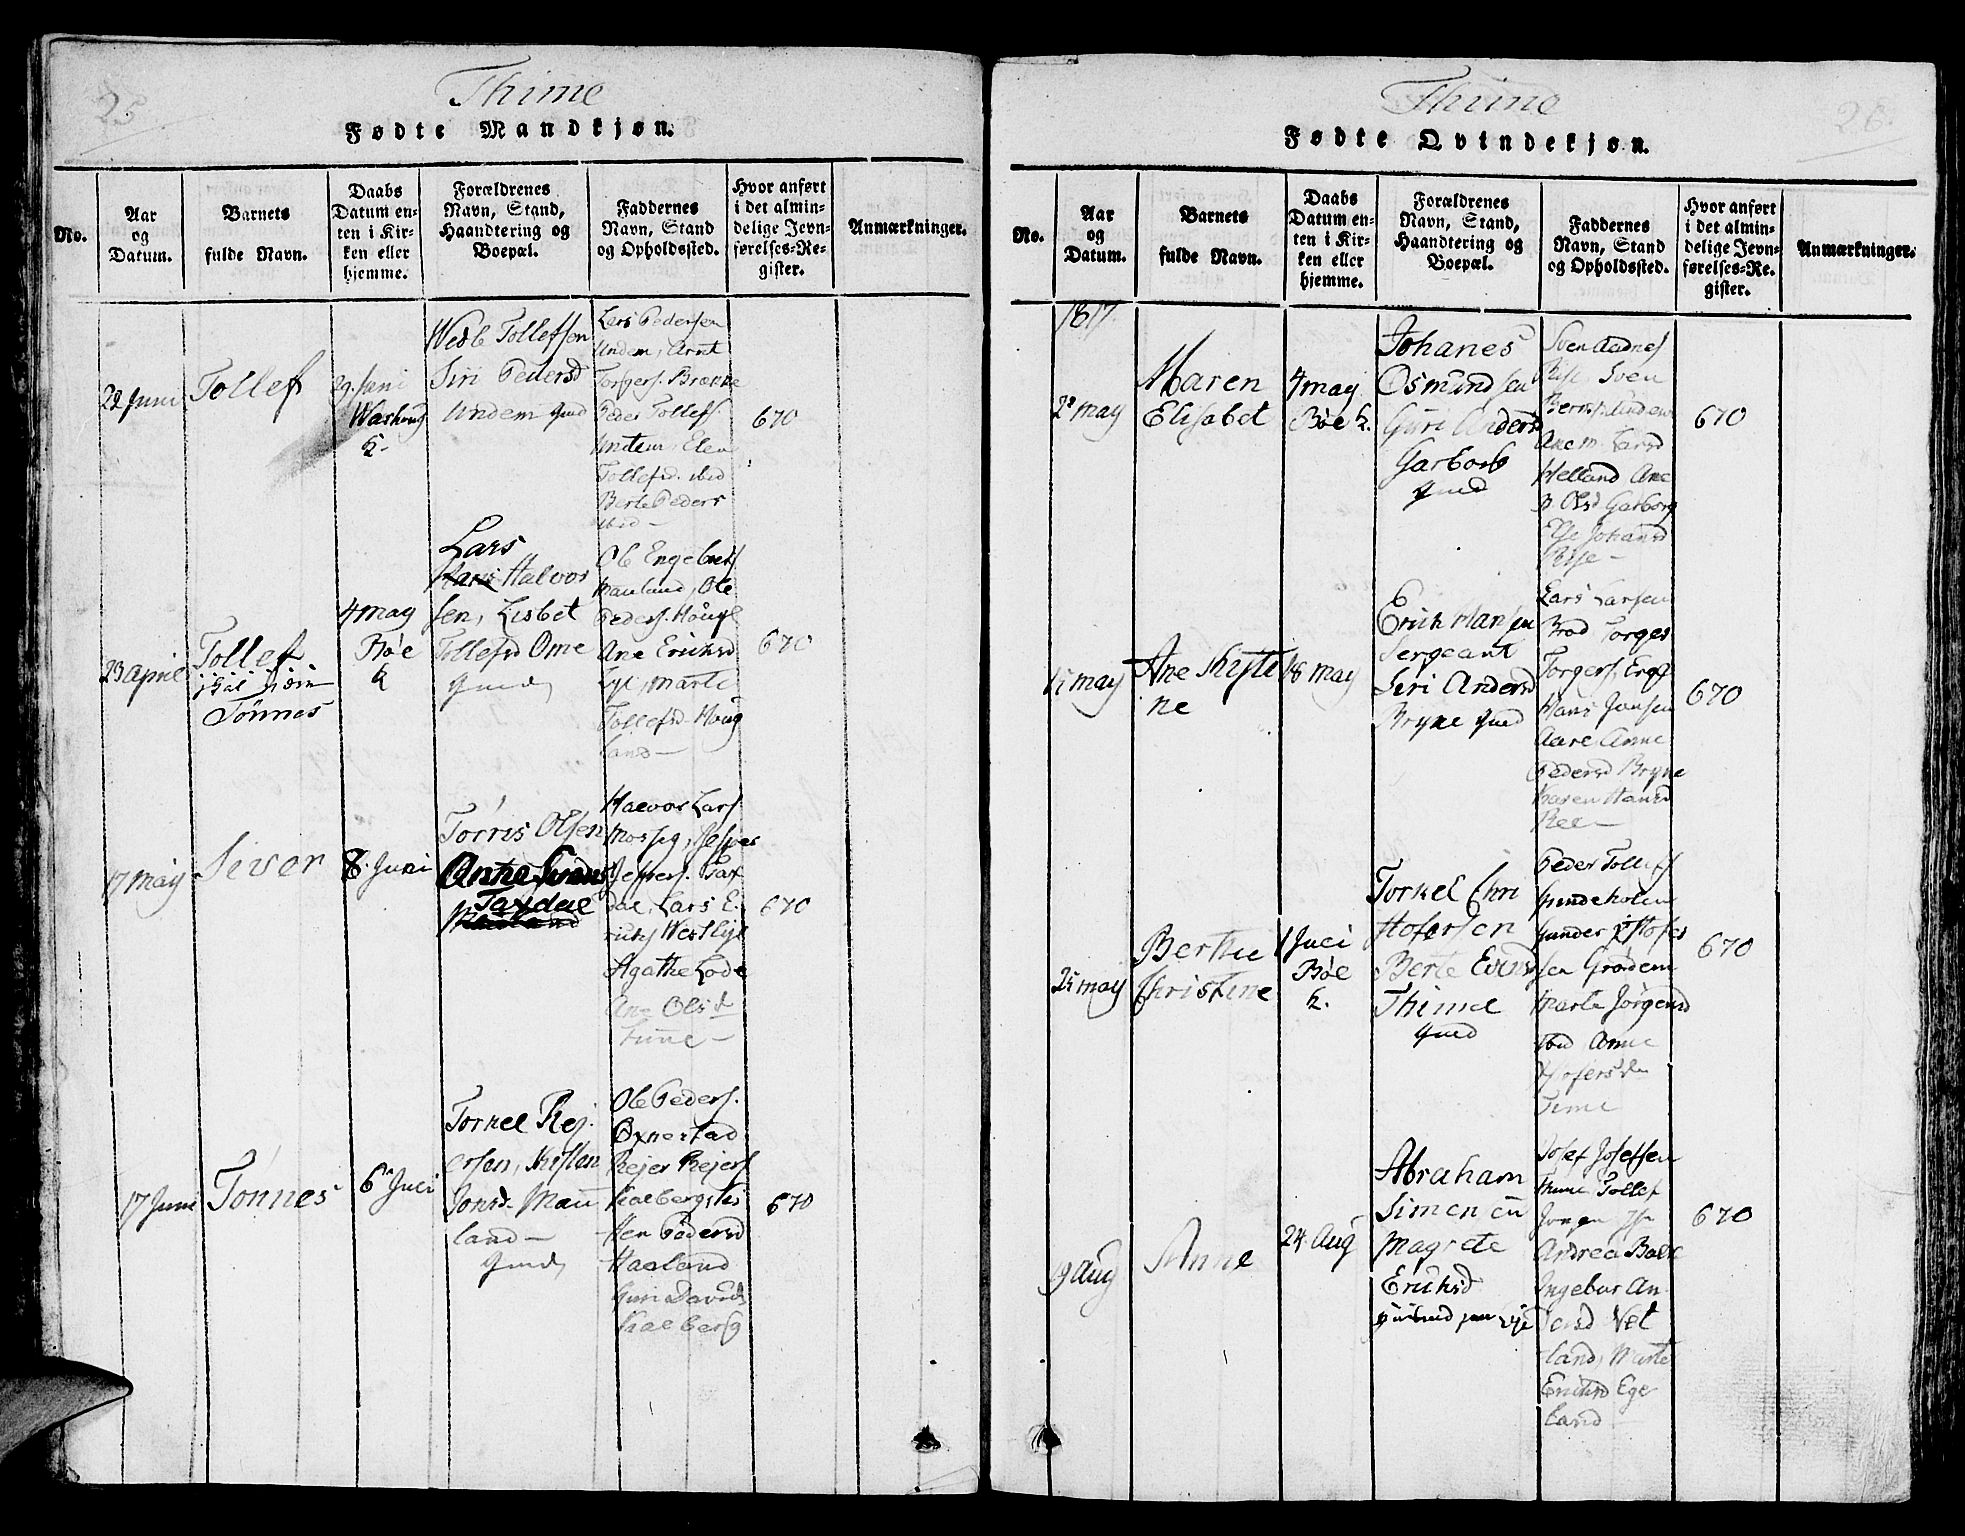 25
Thime
Fødte Mandkjøn.
No.
Aar
og
Datum.
Barnets
fulde Navn.
Daabs
Datum en-
ten i Kir-
ken eller
hjemme.
Forældrenes
Navn, Stand,
Haandtering og
Boepæl.
Faddernes
Navn, Stand
og Opholdssted.
Hvor anført
i det almin-
delige Jevn-
førelses-Re-
gister.
Anmærkninger.
22 Juni
Tollef
29. Juni
k.
Tollefsen
Siri Pedersd
Undem gmd
Lars Pedersen
Undem, Arnt
Torgers. Bryne
Peder Tollefs.
Undem, Elen
Tollefsd. ibid
Berte Peders
ibid
670
23 April
Tollef
skal være
Tønnes
4 may
Bøe
k
Lars
Hans Halvor
sen, Lisbet
Tollefsd Ome
gmd
Ole Engebrets
Mauland, Ole
Peders. Haugl
Ane Ericksd
Lye, Marte
Tollefsd Haug
land
670
17 may
Siver
8. Juni
Torris Olsen
Taxdal
Halvor Lars
Mossig, Jesper
Jespers. Tax
dal, Lars E.
richs Westlye
Agathe Lode
Ane Olsd
Lime
670
17 Juni
Tønnes
6 Juli
Torkel Rej
ersen, Kisten
Jonsd. Mau
land
gmd
Ole Peders.
Øxnestad
Rejer Rejers
Kalberg, Kis
ten Pedersd
Haaland
Guri Davids
Kalberg
670
26.
Thime
Fødte Qvindekjøn.
No.
Aar
og
Datum.
Barnets
fulde Navn.
Daabs
Datum en-
ten i Kir-
ken eller
hjemme.
Forældrenes
Navn, Stand,
Haandtering og
Boepæl.
Faddernes
Navn, Stand
og Opholdssted.
Hvor anført
i det almin-
delige Jevn-
førelses-Re-
gister.
Anmærkninger.
1817.
2 may
Maren
Elisabet
4 may
Bøe k.
Johanes
Osmundsen
Guri Andersd
Garborg
gmd
Sven Aadnes
Riise, Sven
Ane M. Larsd
Helland Ane
B. Olsd Garborg
Johansd
Riise
670
may
Ane Kisti
ne
18 may
Erick Hansen
Sergeant
Siri Andersd
Bryne gmd
Lars Larsen
Brod Torges
Torgers.
Hans Jonsen
Aare Anne
Pedersd Bryne
Karen Hansd
Ree
670
25 may
Berthe
Christine
1 Juli
Bøe
k.
Torkel Chri
stofersen
Berte Evensd
Thime
gmd
Peder Tollefs
sen Grødem
Marte Jørgensd
ibid Anne
Time
670
19 Aug
Anne
24 Aug
Abraham
Simensen
Magrete
Ericksd
Josef Josefsen
Thime Tollef
Andrea Boeke
Ingebor An
Vet
land, Marte
Ericksd Ege
land
670